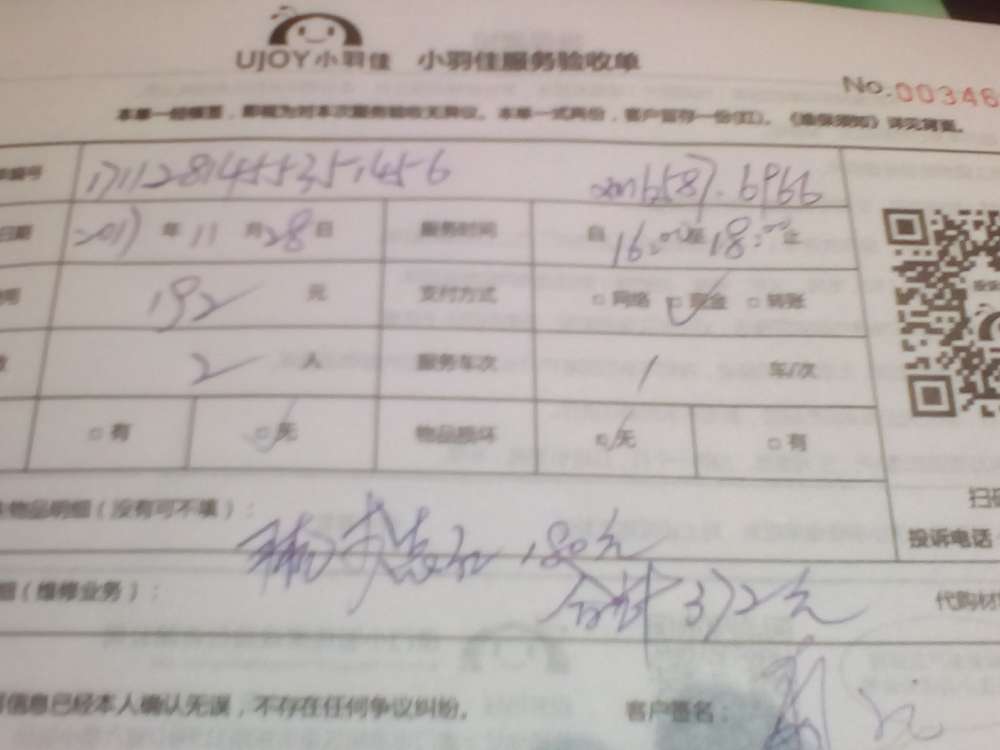 UJOY小羽佳 小羽佳服务验收单
No.00346
本单一经填写，即视为对本次服务验收无异议。本单一式两份，客户留存一份(红)。《维保须知》详见背面。
编号 1711281455351456
日期 2017年11月28日 服务时间 自16:00至18:00止
192 元 支付方式 □网络 □现金 □转账
2 人 服务车次 1 车/次
□有 □无 物品损坏 □无 □有
物品明细（没有可不填）： 180元
扫
投诉电话
细（维修业务）： 合计372元 代购材
信息已经本人确认无误，不存在任何争议纠纷。 客户签名：